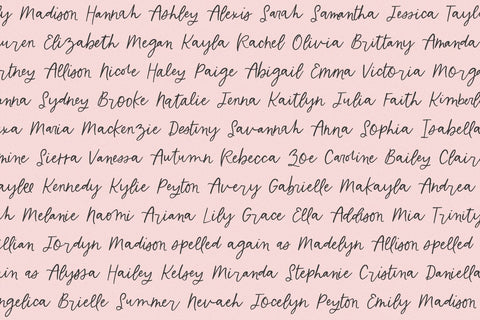 ly Madison Hannah Ashley Alexis Sarah Samantha Jessica Taylo
uren Elizabeth Megan Kayla Rachel Olivia Brittany Amanda
rtney Allison Nicole Haley Paige Abigail Emma Victoria Morga
anna Sydney Brooke Natalie Jenna Kaitlyn Julia Faith Kimberl
exa Maria Mackenzie Destiny Savannah Anna Sophia Isabella
mine Sierra Vanessa Autumn Rebecca Zoe Caroline Bailey Clair
aylee Kennedy Kylie Peyton Avery Gabrielle Makayla Andrea
ah Melanie Naomi Ariana Lily Grace Ella Addison Mia Trinity
illian Jordyn Madison spelled again as Madelyn Allison spelled
ain as Alyssa Hailey Kelsey Miranda Stephanie Cristina Daniella
ngelica Brielle Summer Nevaeh Jocelyn Peyton Emily Madison